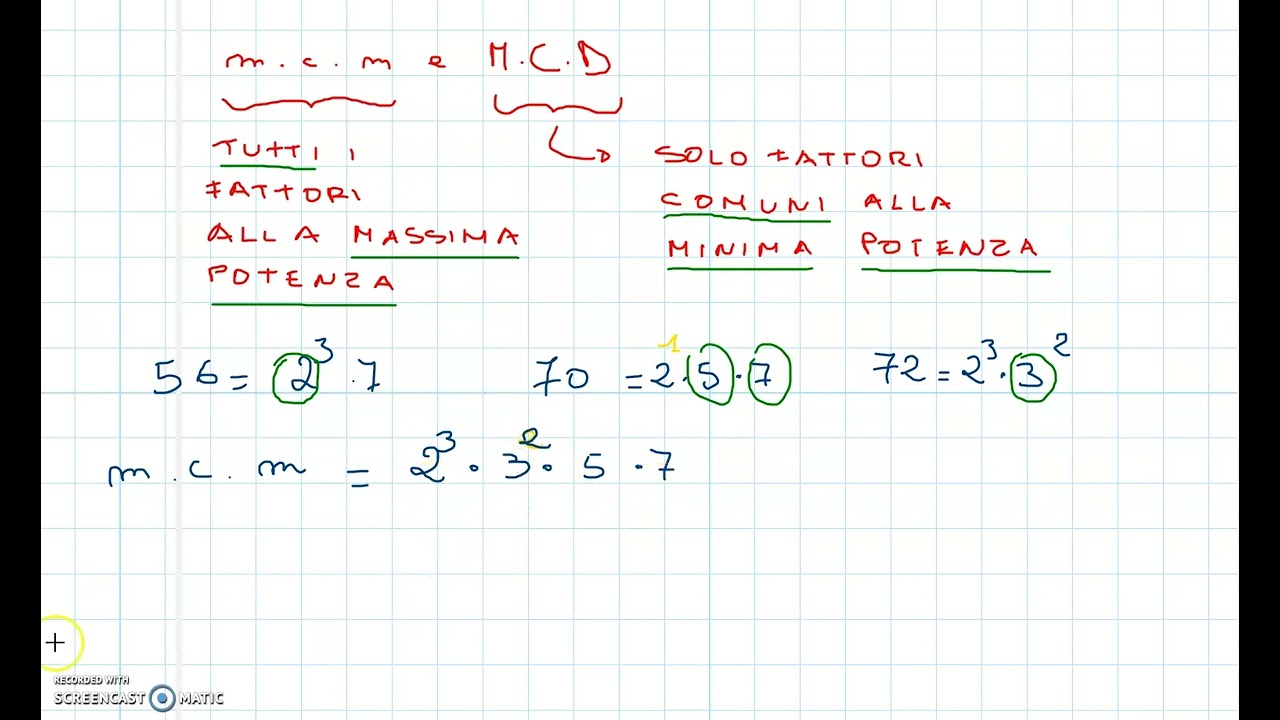 m.c.m e M.C.D
TUTTI I
FATTORI
ALLA MASSIMA
POTENZA
SOLO FATTORI
COMUNI ALLA
MINIMA POTENZA
56 = 2³ · 7
70 = 2¹ · 5 · 7
72 = 2³ · 3²
m.c.m = 2³ · 3² · 5 · 7
RECORDED WITH
SCREENCAST MATIC